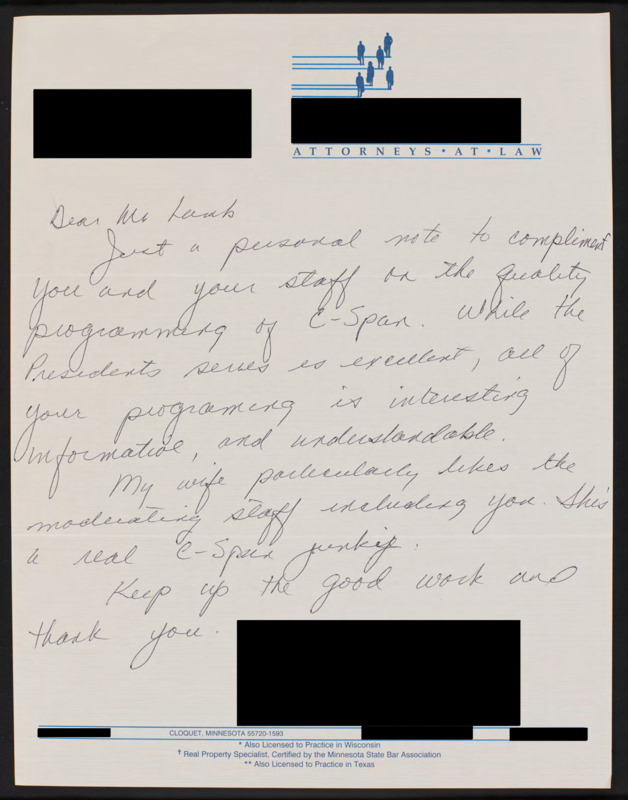 ATTORNEYS * AT * LAW
Dear Mr Lamb
Just a personal note to compliment
you and your staff on the quality
programming of C-Span. While the
Presidents series is excellent, all of
your programing is interesting
informative, and understandable.
My wife particularly likes the
moderating staff including you. She's
a real C-Span junkie.
Keep up the good work and
thank you.
CLOQUET, MINNESOTA 55720-1593
* Also Licensed to Practice in Wisconsin
† Real Property Specialist, Certified by the Minnesota State Bar Association
** Also Licensed to Practice in Texas